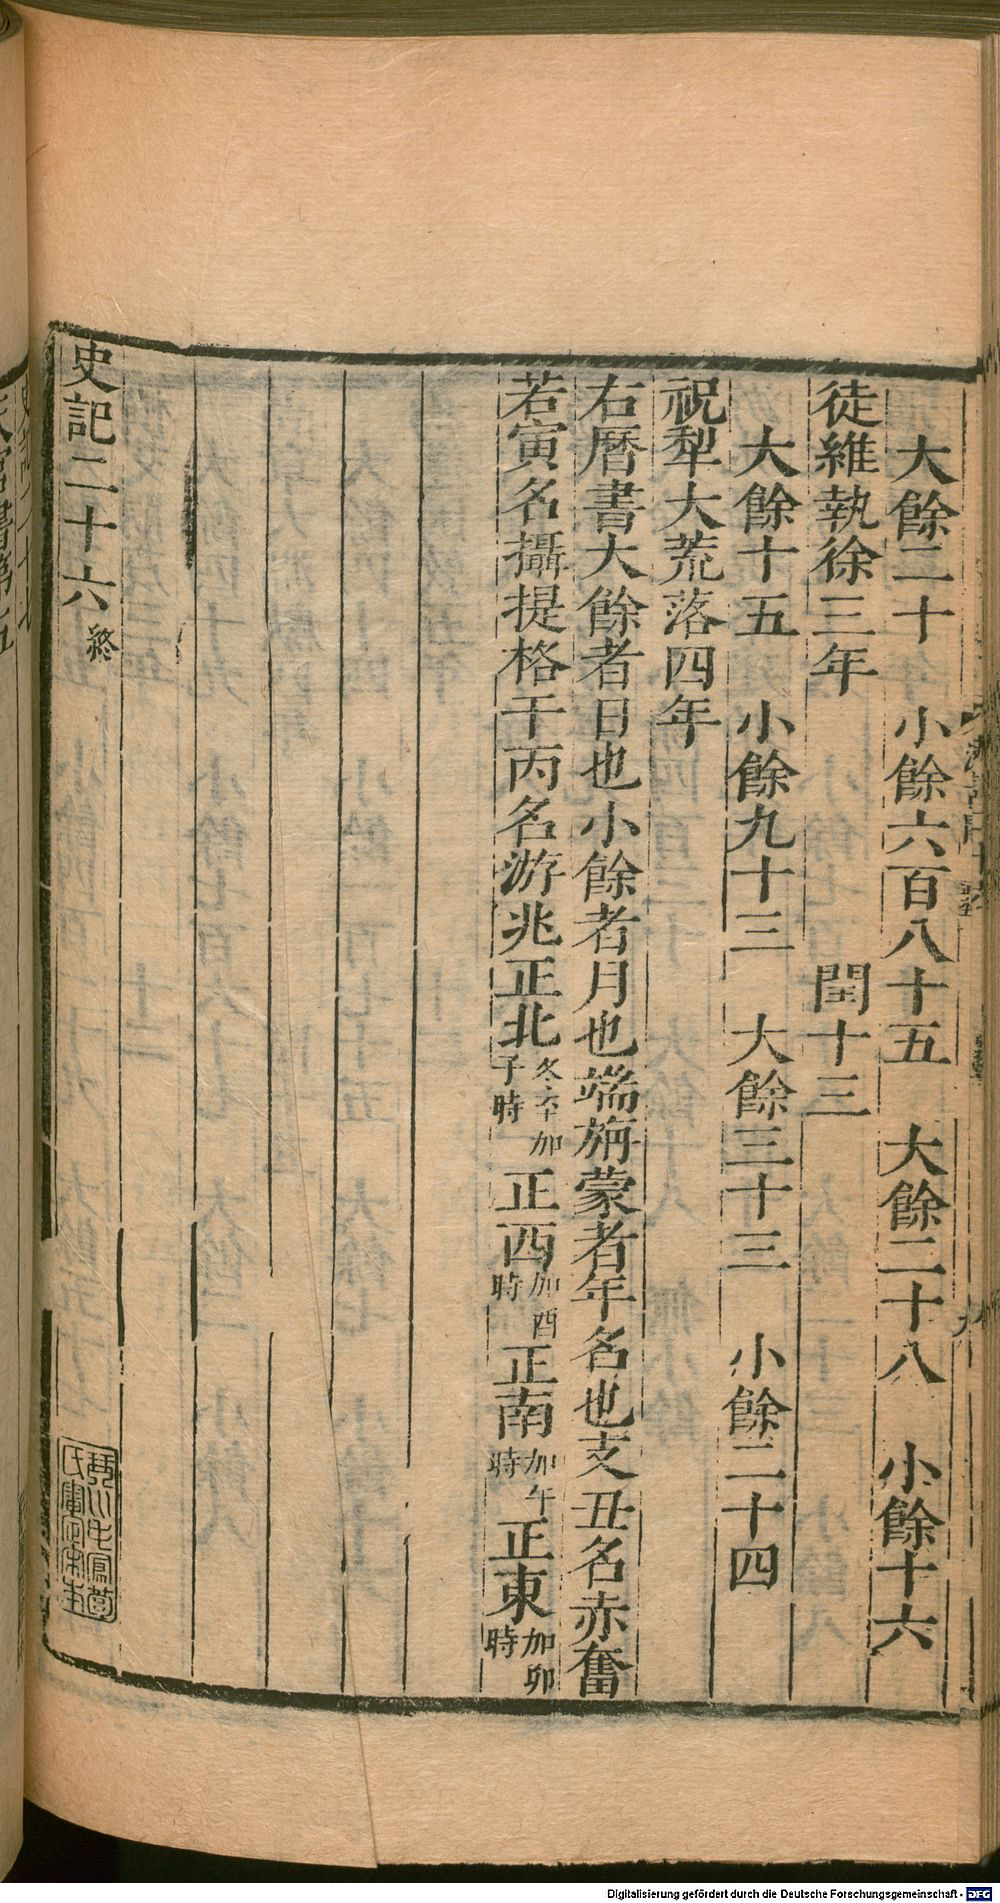 大餘二十　小餘六百八十五　大餘二十八　小餘十六
徒維執徐三年　閏十三
大餘十五　小餘九十三　大餘三十三　小餘二十四
祝犁大荒落四年
右曆書大餘者日也小餘者月也端旃蒙者年名也支丑名赤奮
若寅名攝提格干丙名游兆正北冬至加子時正西加酉時正南加午時正東加卯時
史記二十六終
琴川毛鳳苞氏審定宋本
Digitalisierung gefördert durch die Deutsche Forschungsgemeinschaft - DFG